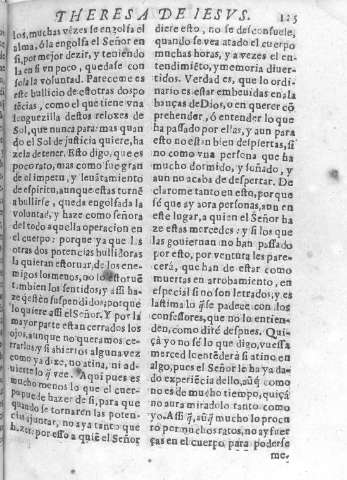 THERESA DE IESVS. 125
los, muchas vezes se engolfa el
alma, ò la engolfa el Señor en
si, por mejor dezir, y teniendo
la en si vn poco, quedase con
sola la voluntad. Pareceme es
este bullicio de estotras dos po
tēcias, como el que tiene vna
lenguezilla destos reloxes de
Sol, que nunca para: mas quan
do el Sol de justicia quiere, ha
zela detener. Esto digo, que es
poco rato, mas como fue gran
de el impetu, y leuātamiento
de espiritu, aunque estas tornē
a bullirse, queda engolfada la
voluntad, y haze como señora
del todo aquella operacion en
el cuerpo: porque ya que las
otras dos potencias bullidoras
la quieran estoruar, de los ene-
migos los menos, no lo estoruē
tambien los sentidos, y assi ha-
ze estēn suspendidos; porque
lo quiere assi el Señor. Y por la
mayor parte estan cerrados los
ojos, aunque no queramos ce-
rrarlos, y si abiertos alguna vez
como ya dixe, no atina, ni ad-
uierte lo q̃ vee. Aqui pues es
mucho menos lo que el cuer-
po puede hazer de si, para que
quando se tornaren las poten-
cias ajuntar, no aya tanto que
hazer: por esso a quiē el Señor
diere esto, no se desconsuele,
quando se vea atado el cuerpo
muchas horas, y a vezes el en-
tendimiēto, y memoria diuer-
tidos. Verdad es, que lo ordi-
nario es estar embeuidas en ala
banças de Dios, o en querer cō
prehender, ó entender lo que
ha passado por ellas, y aun para
esto no estan bien despiertas, si
no como vna persona que ha
mucho dormido, y soñado, y
aun no acaba de despertar. De
clarome tanto en esto, porque
sé que ay aora personas, aun en
este lugar, a quien el Señor ha
ze estas mercedes: y si los que
las gouiernan no han passado
por esto, por ventura les pare-
cerá, que han de estar como
muertas en arrobamiento, en
especial si no son letrados; y es
lastima lo q̃ se padece con los
confessores, que no lo entien-
den, como diré despues. Qui-
çà yo no sé lo que digo, vuessa
merced lo entēderá si atino en
algo, pues el Señor le ha ya da-
do experiēcia dello, aūq̃ como
no es de mucho tiempo, quiçà
no aura miradolo tanto como
yo. Assi q̃, aūq̃ mucho lo procu
ro por muchos ratos, no ay fuer
ças en el cuerpo, para poderse
me-